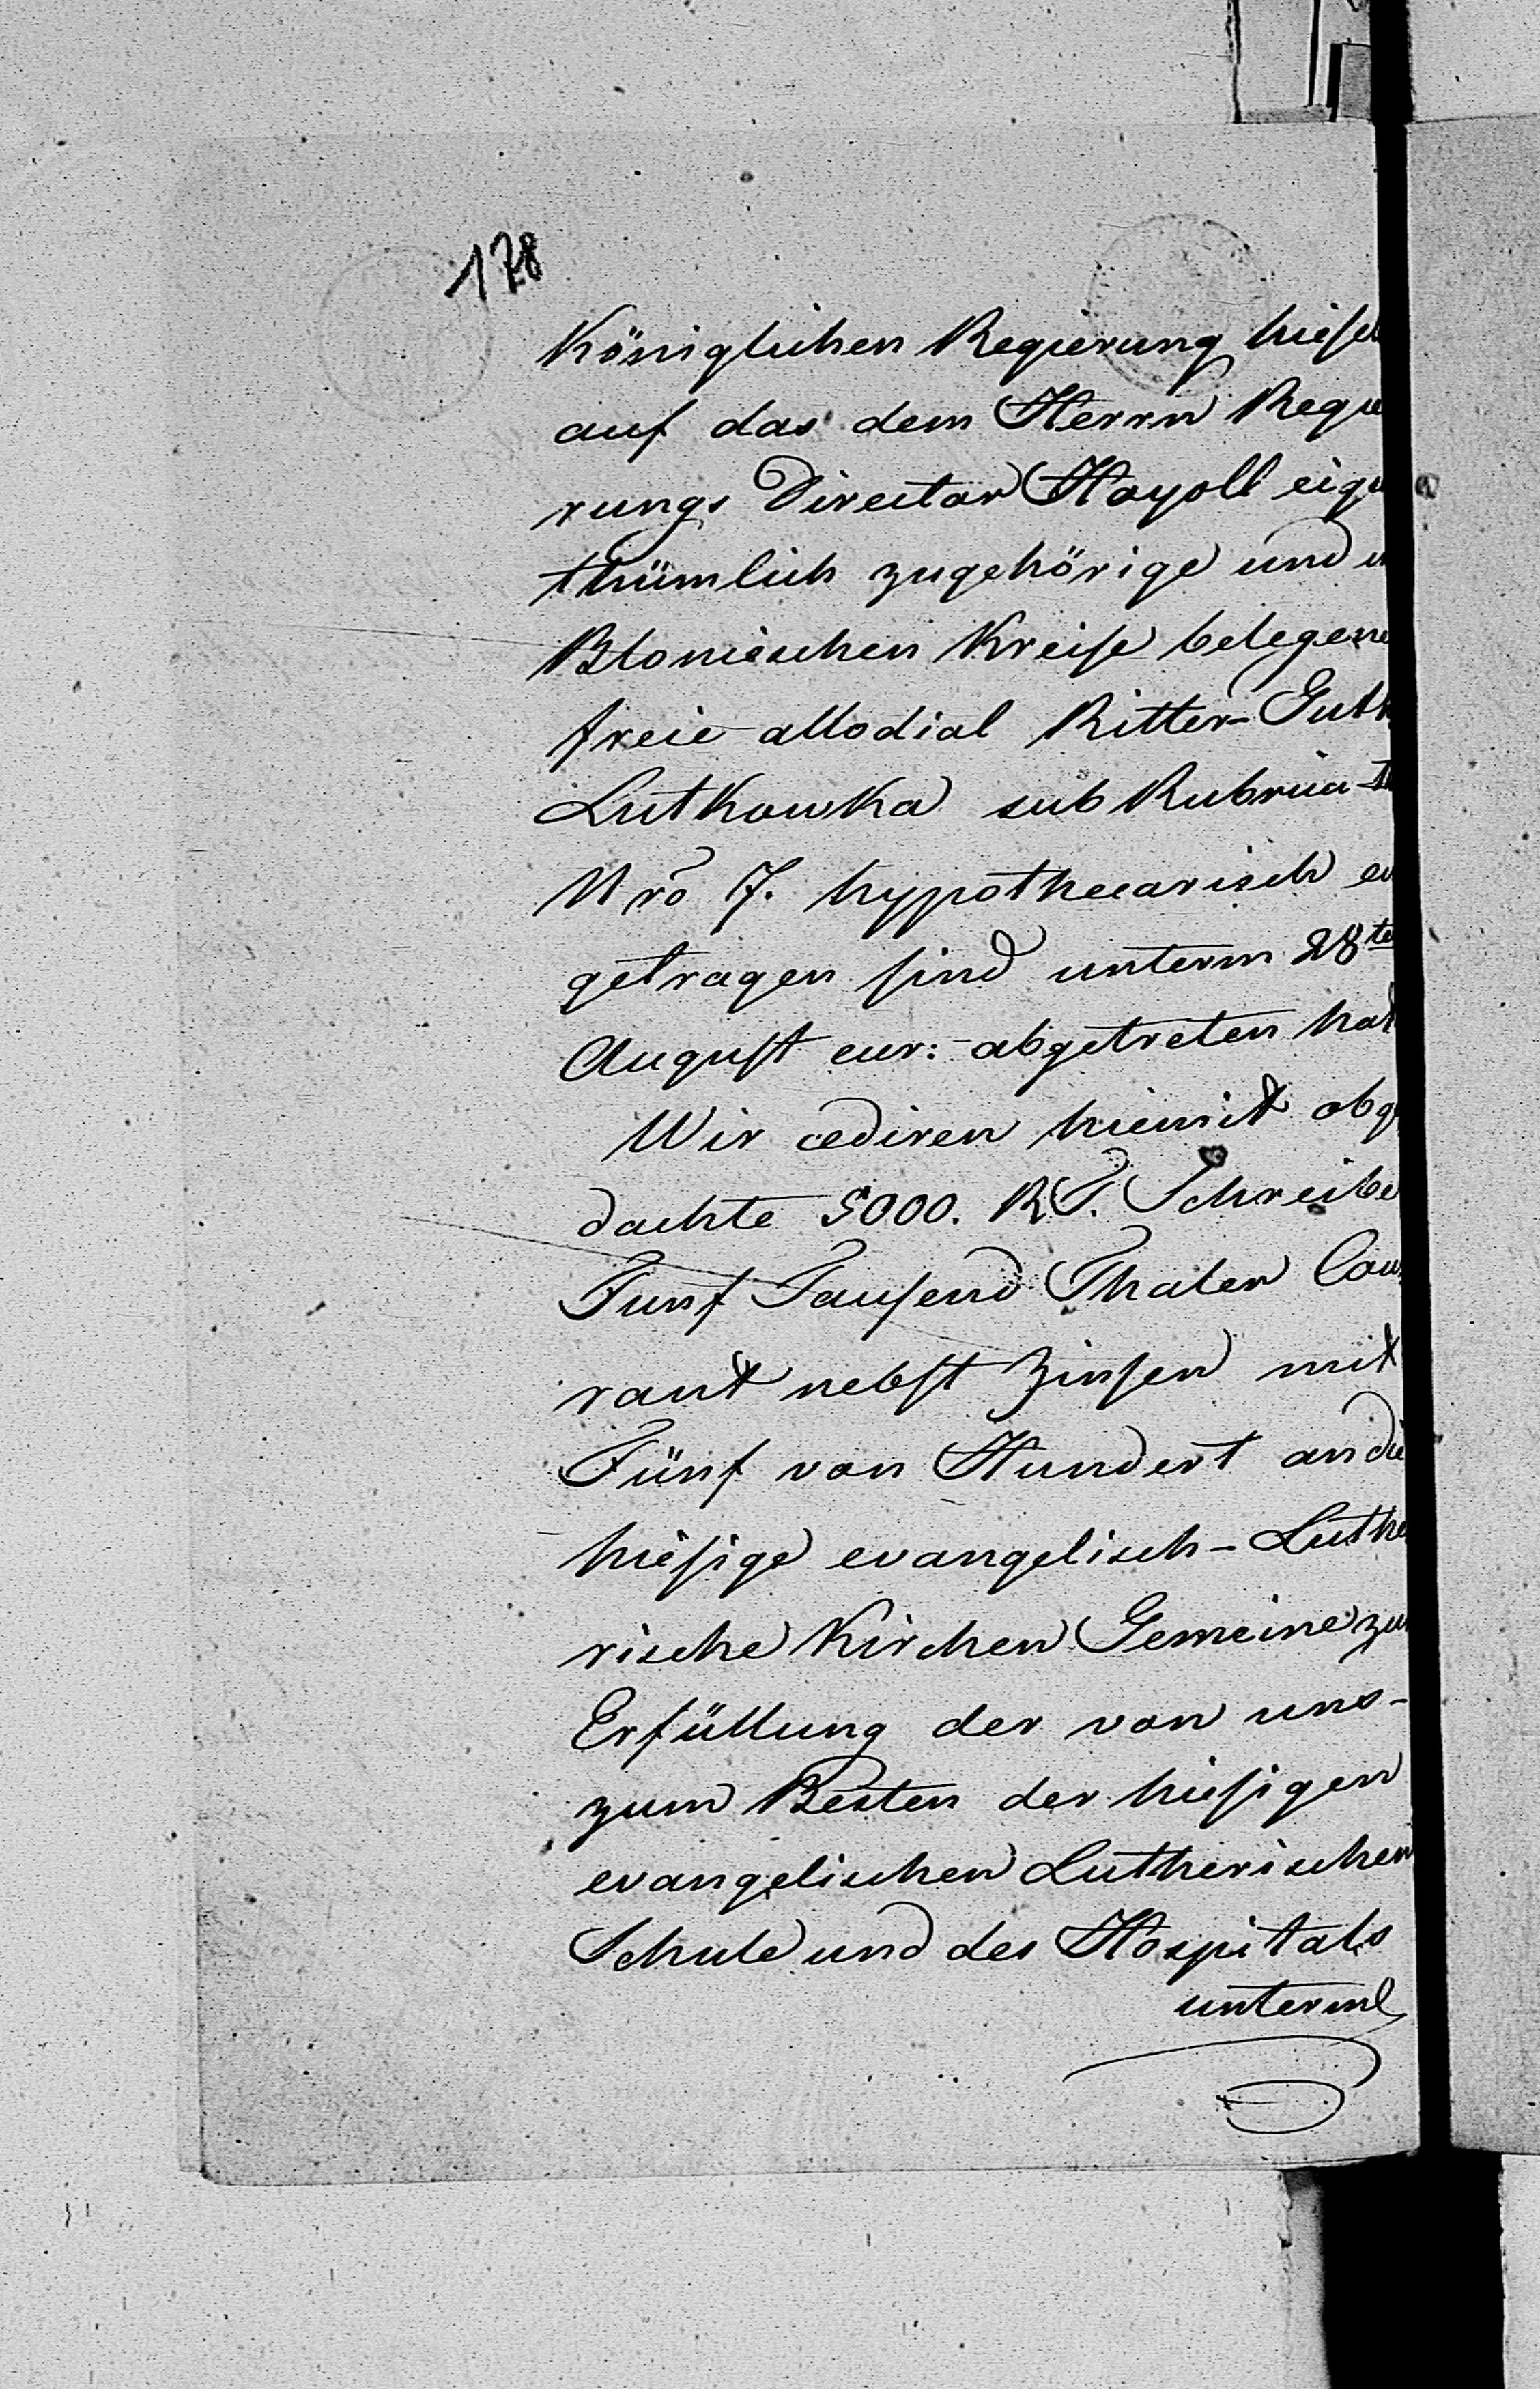 178
Königlichen Regierung hiesel
auf das dem Herrn Regie
rungs Director Hoyoll eige
thümlich zugehörige und
Blonieschen Kreise belegene
freie allodial Ritter-Guth
Lutkowka sub Rubrica
Nro 7. hypothecarisch ei
getragen sind unterm 28te
August cur: abgetreten hat
Wir cediren hiemit obge
dachte 5000. RT. Schreibe
Funf Tausend Thaler Cou
rant nebst Zinsen mit
Fünf von Hundert an die
hiesige evangelisch-Luthe
rische Kirchen Gemeine zur
Erfüllung der von uns-
zum Besten der hiesigen
evangelischen Lutherischen
Schule und des Hospitals
unterm